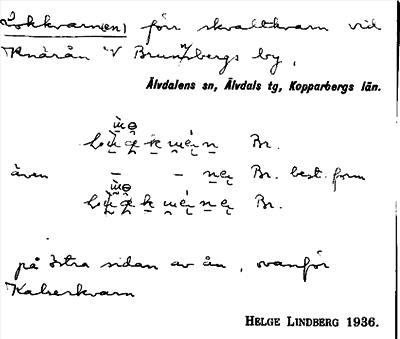 Lokkvarn(en) för skvaltkvarn vid
Knärån V Brunnsbergs by.
Älvdalens sn, Älvdals tg, Kopparbergs län.
Br.
även – – Br. best. form
Br.
på östra sidan av ån, ovanför
Kalserkvarn
HELGE LINDBERG 1936.